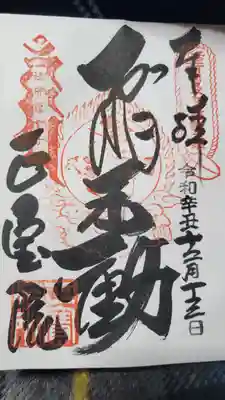 奉拝
令和辛丑十二月十三日
飛不動
正宝院